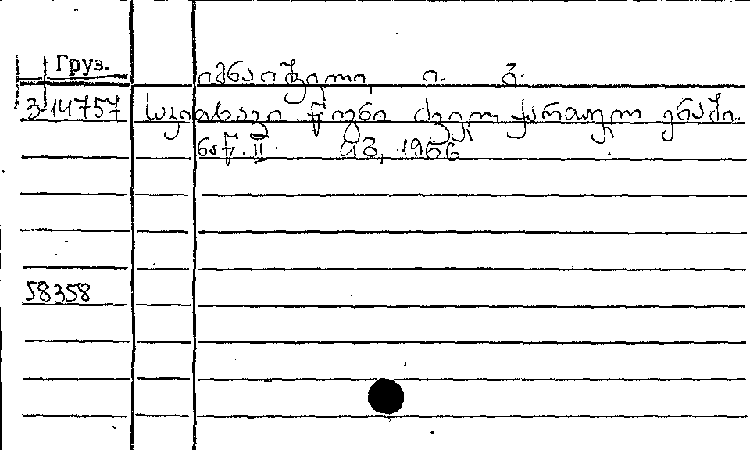 Груз.
იმნაიშვილი, ი. ვ.
3 14757 საკითხავი წიგნი ძველ ქართულ ენაში.
ნაწ. II თბ, 1966
58358